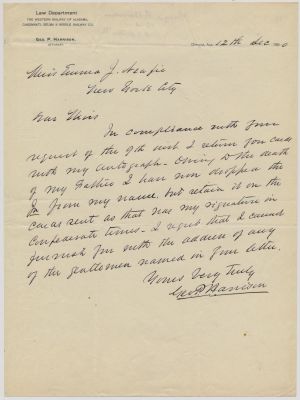 Law Department
THE WESTERN RAILWAY OF ALABAMA,
CINCINNATI, SELMA & MOBILE RAILWAY CO.
GEO. P. HARRISON,
ATTORNEY.
Opelika, Ala. 12th Dec
Miss Emma J.
New York City
Dear Miss
In compliance with your
request of the 9th inst I return you cards
with my autograph - Owing to the death
of my Father I have now dropped the
Jr from my name, but retain it on the
cards sent as that was my signature in
Confederate times - I regret that I cannot
furnish you with the address of any
of the gentlemen named in your letter.
Yours Very truly
Geo P Harrison